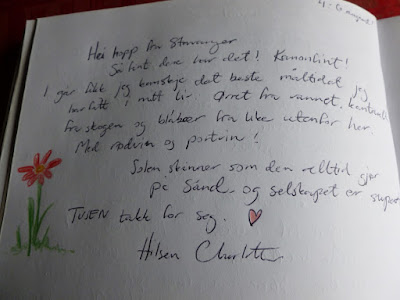 4.-6. august
Hei hopp fra Stavanger
Så fint dere har det! Kanonfint!
I går fikk jeg kanskje det beste måltidet jeg
har hatt i mitt liv. Ørret fra vannet,
fra skogen og blåbær fra like utenfor her.
Med rødvin og portvin!
Solen skinner som den alltid gjør
på Sånd og selskapet er super
TUSEN takk for seg.
Hilsen Charlotte